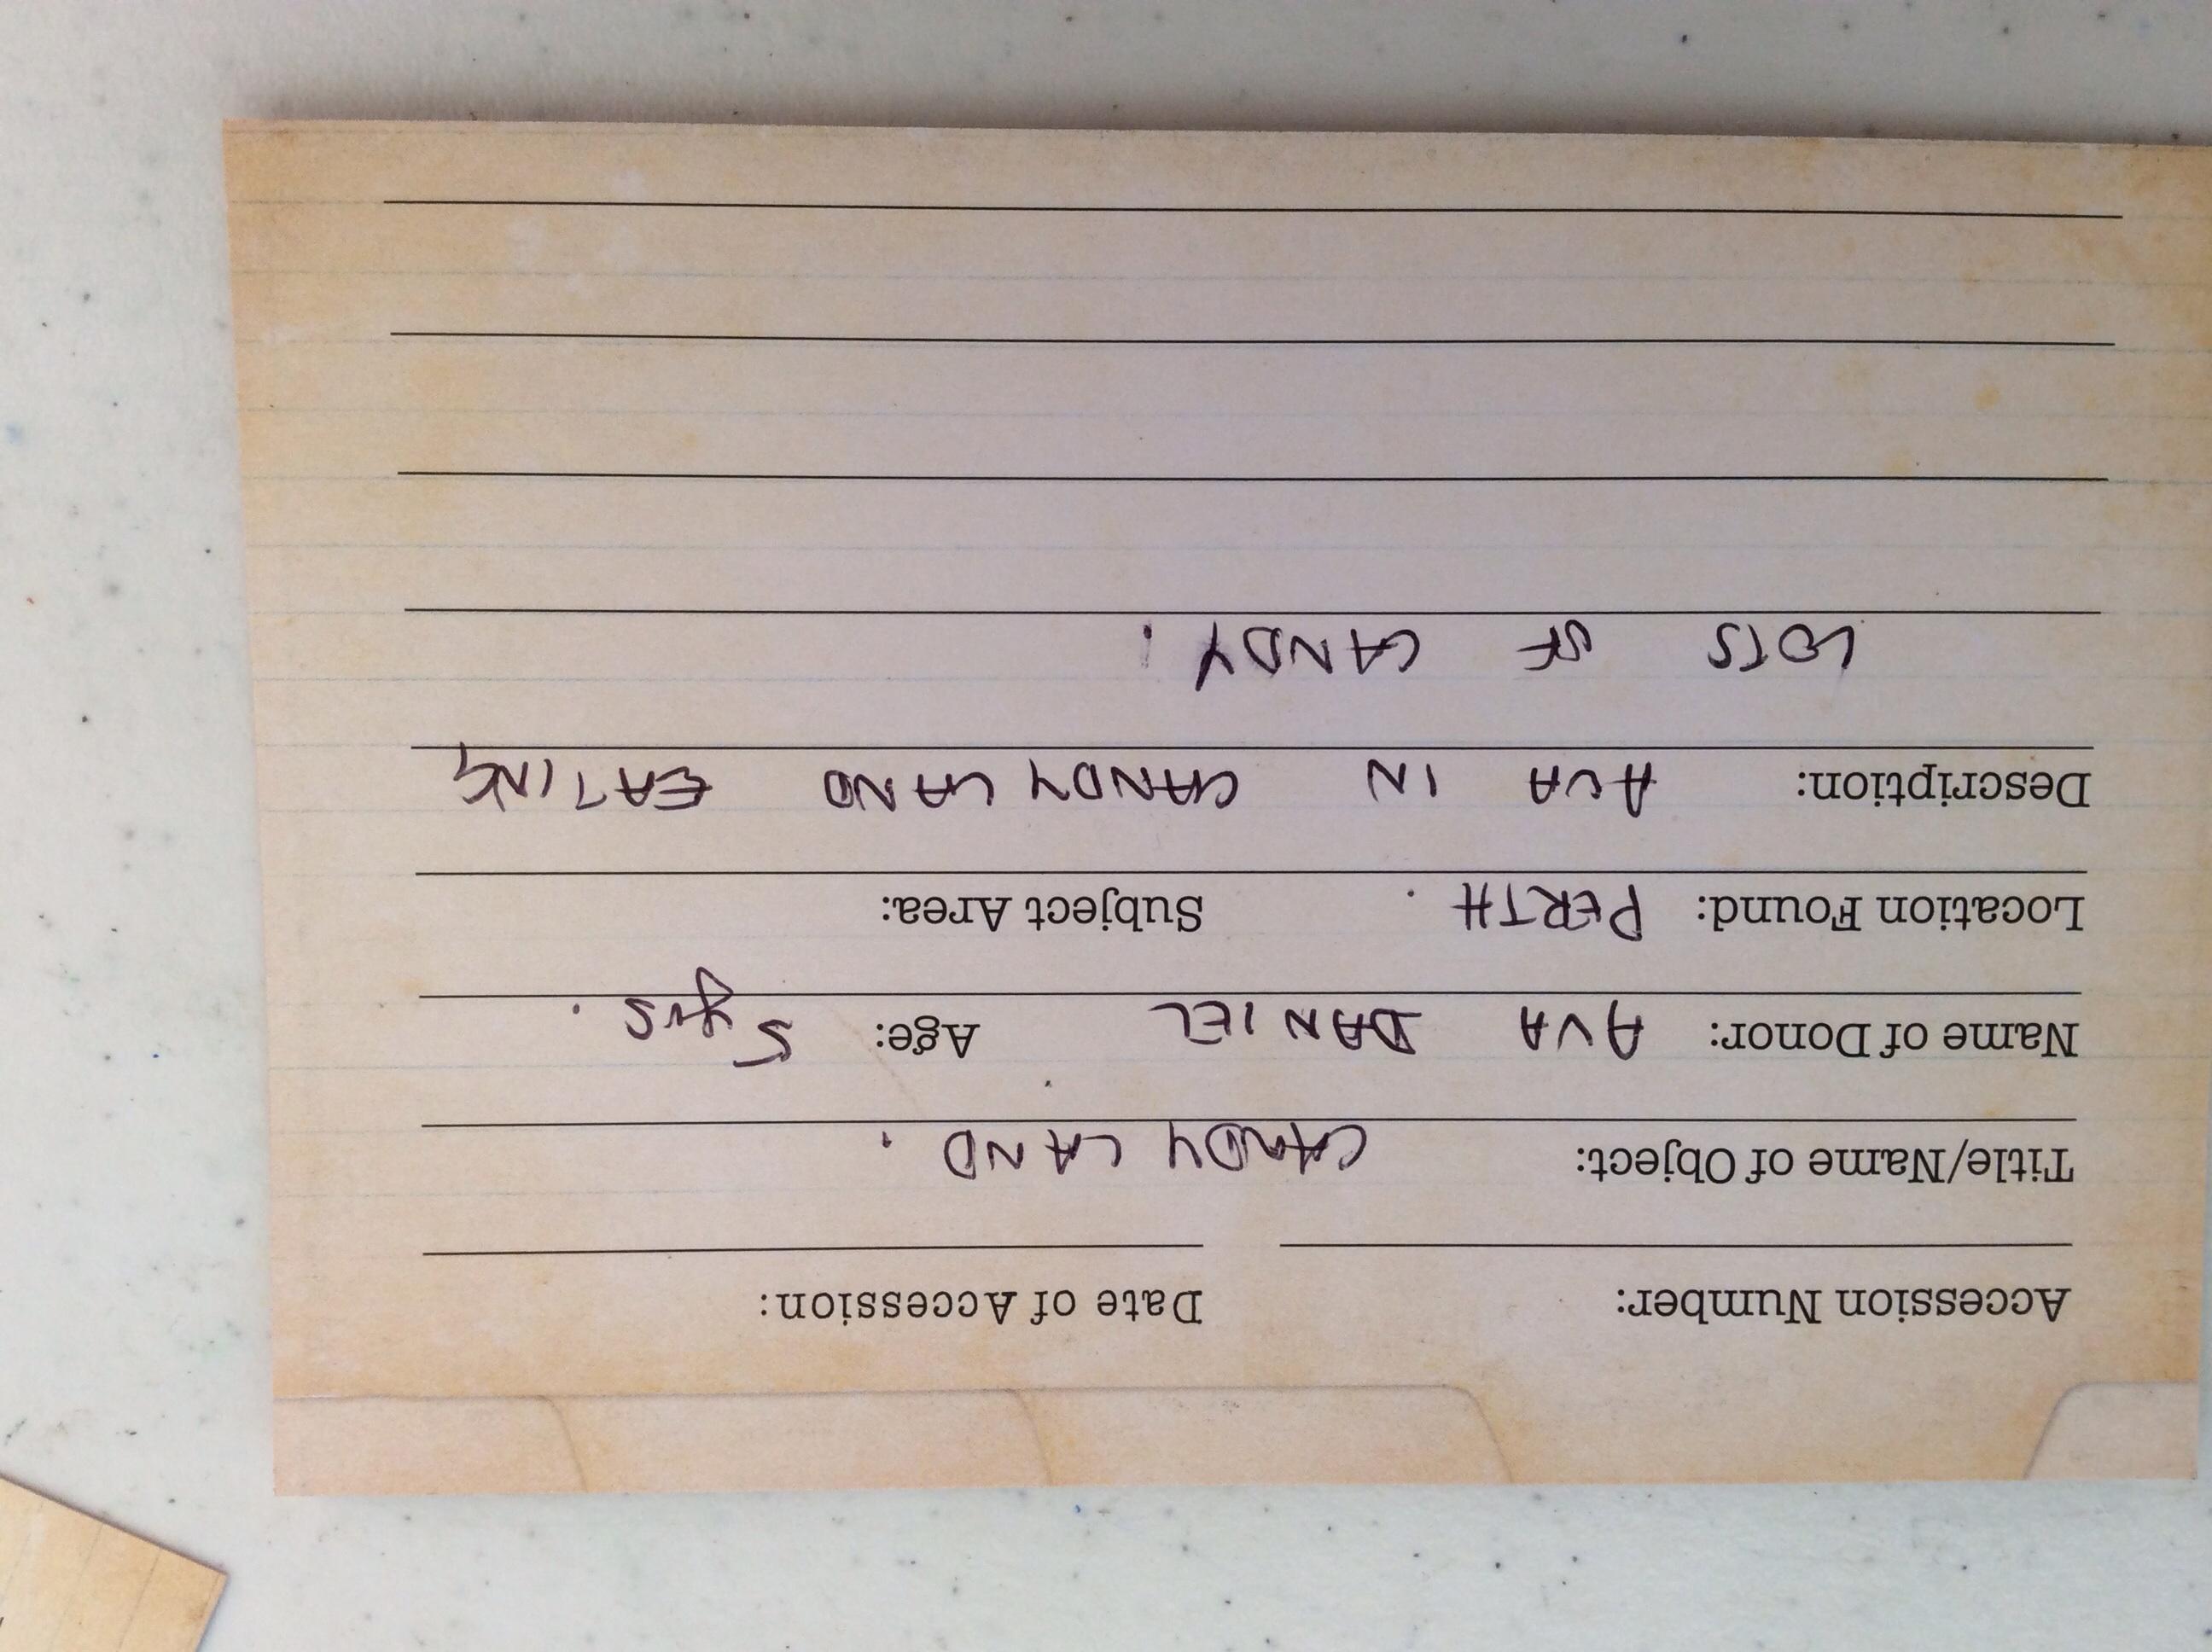 Accession Number: Date of Accession:
Title/Name of Object: CANDY LAND.
Name of Donor: AVA DANIEL Age: 5yrs.
Location Found: PERTH. Subject Area:
Description: AVA IN CANDY LAND EATING
LOTS OF CANDY!